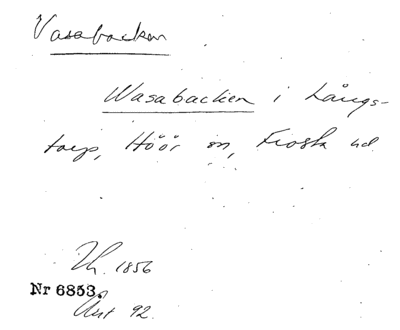 Vasabacken
Wasabacken i Långs-
torp, Höör sn, Frosta hd.
Th. 1856
Nr 6853.
Avt 92.